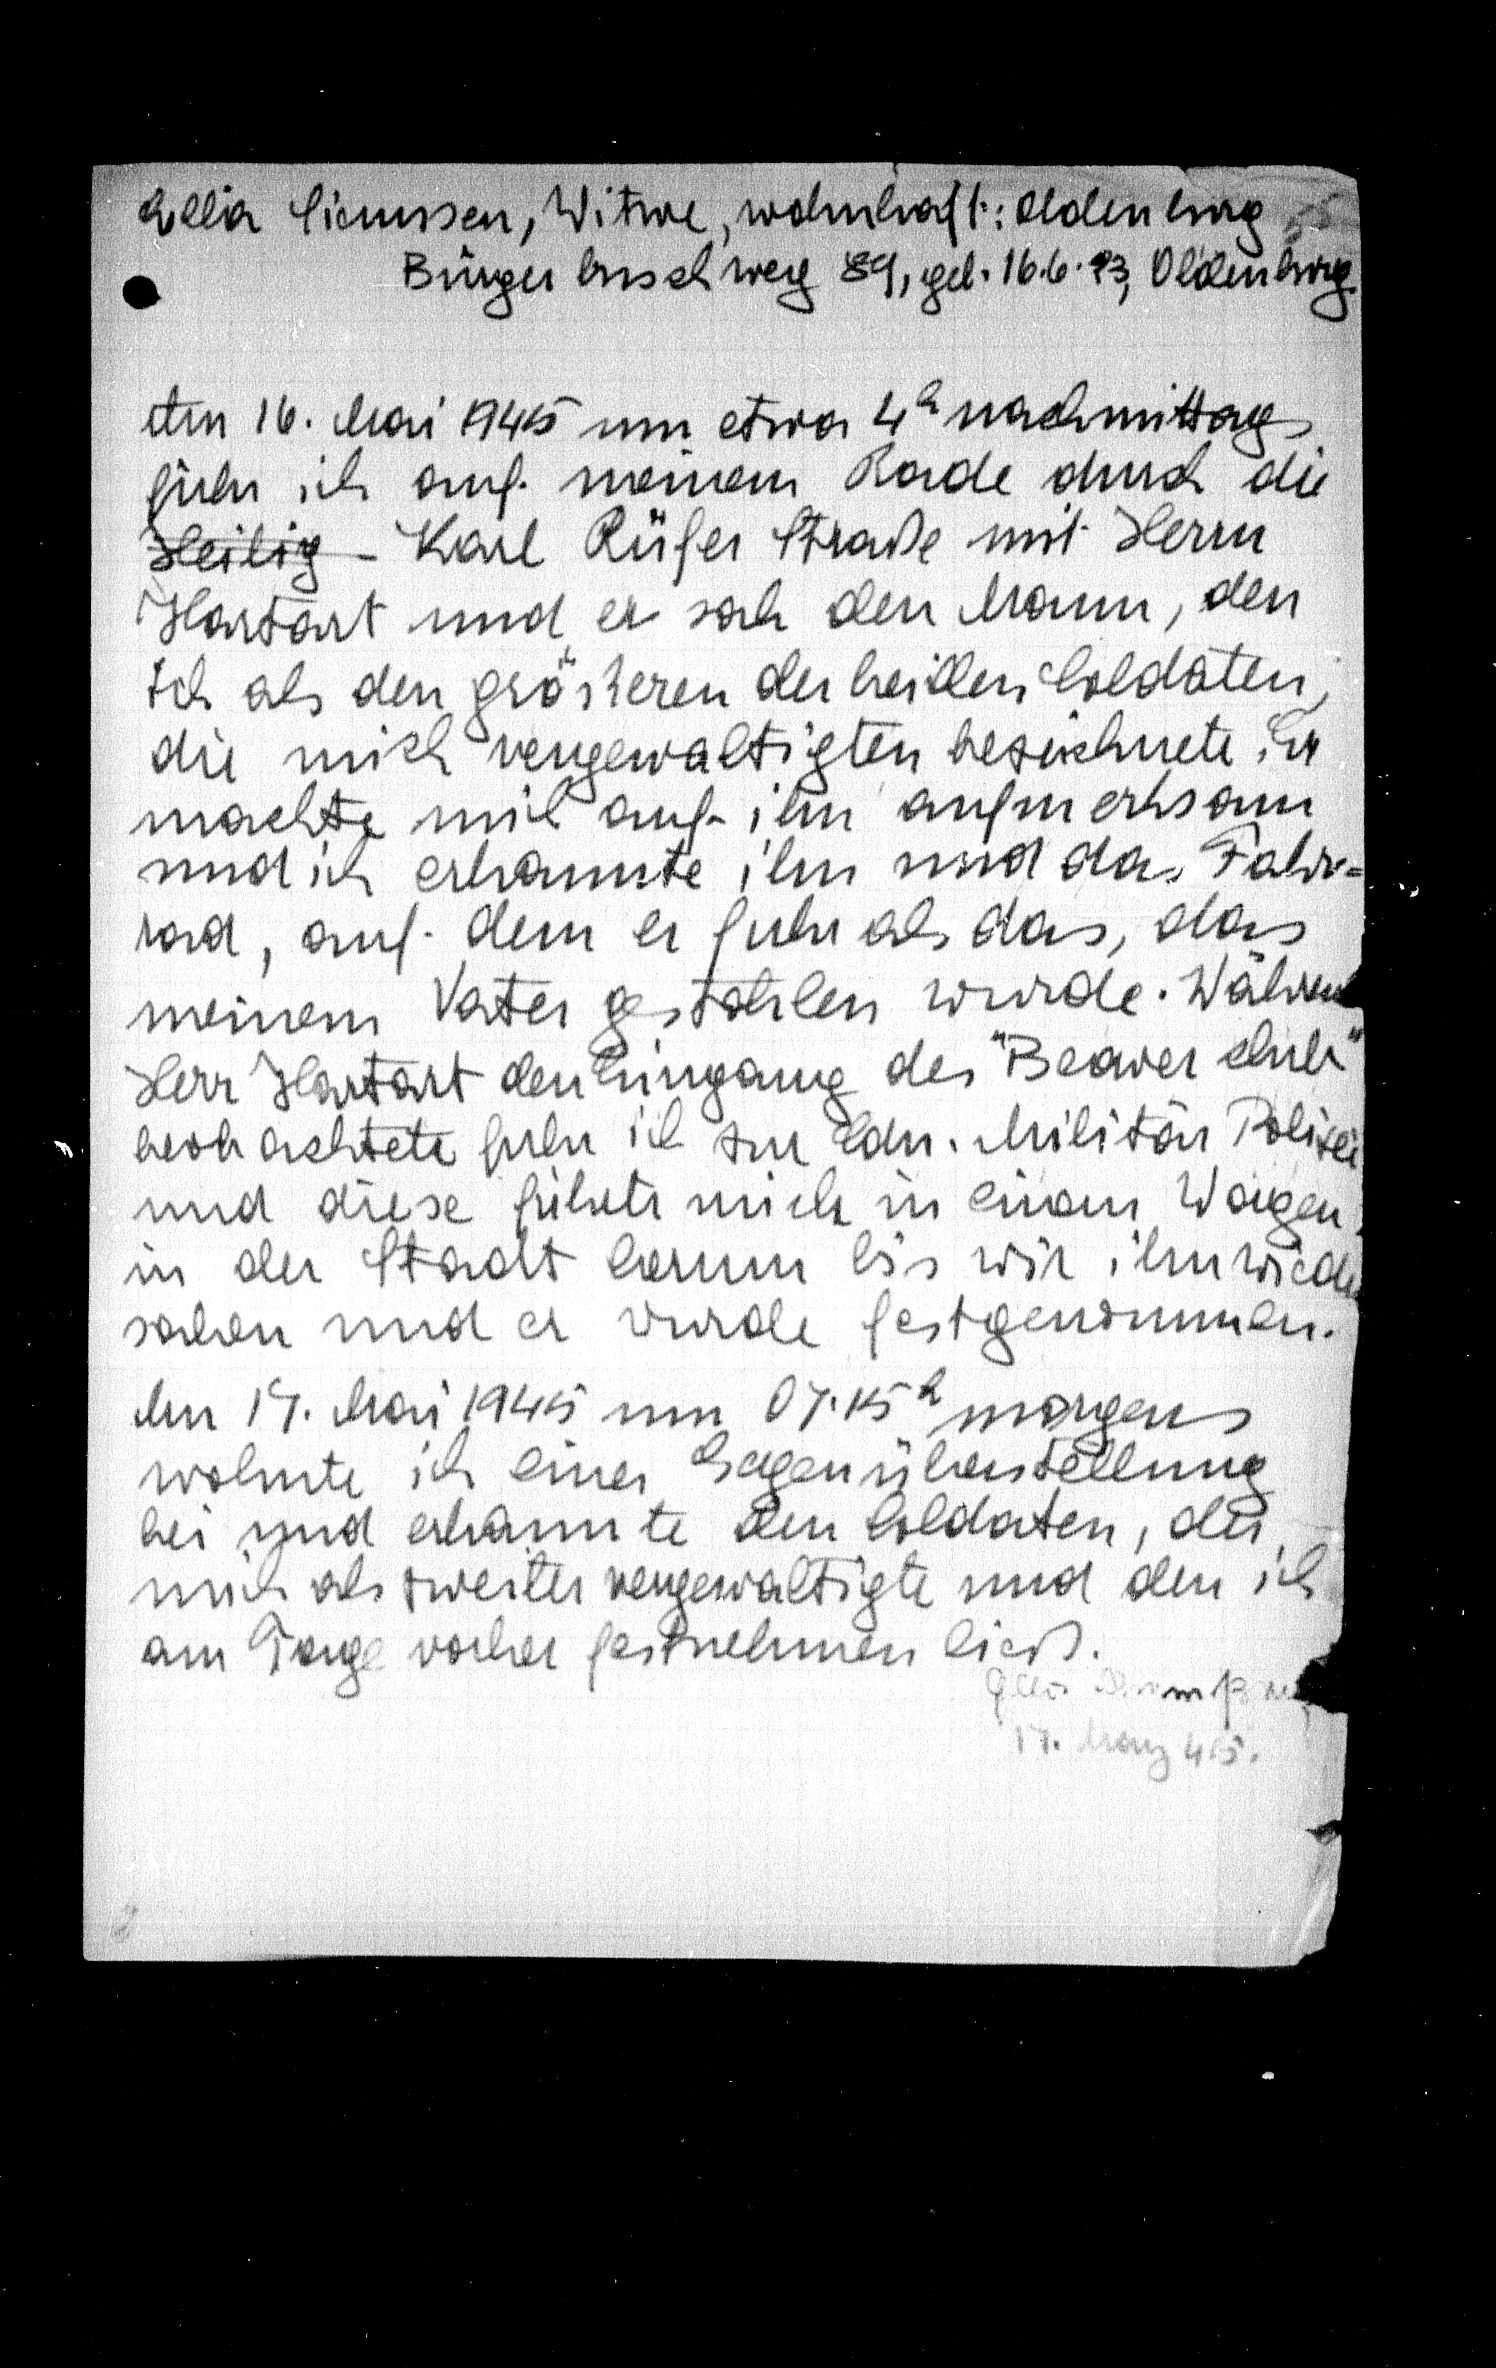 Ella Siemssen, Witwe, wohnhaft: Oldenburg
Bürgerbuschweg 89, geb. 16.6.93, Oldenburg.
Am 16. Mai 1945 um etwa 4h nachmittags
fuhr ich auf meinem Rade durch die
Heilig - Karl Rüfer Straße mit Herrn
Hartart und er sah den Mann, den
ich als den grösseren der beiden Soldaten,
die mich vergewaltigten bezeichnete. Er
machte mich auf ihn aufmerksam
und ich erkannte ihn und das Fahr=
rad, auf dem er fuhr als das, das
meinem Vater gestohlen wurde. Während
Herr Hartart den Eingang des "Beaver Club"
beobachtete fuhr ich zur Cdn. Militär Polizei
und diese führte mich in einem Wagen
in der Stadt herum bis wir ihn wieder
sahen und er wurde festgenommen.
Am 17. Mai 1945 um 07.15h morgens
wohnte ich einer Gegenüberstellung
bei und erkannte den Soldaten, der
mich als zweiter vergewaltigte und den ich
am Tage vorher festnehmen ließ.
Ella
17. May 45.